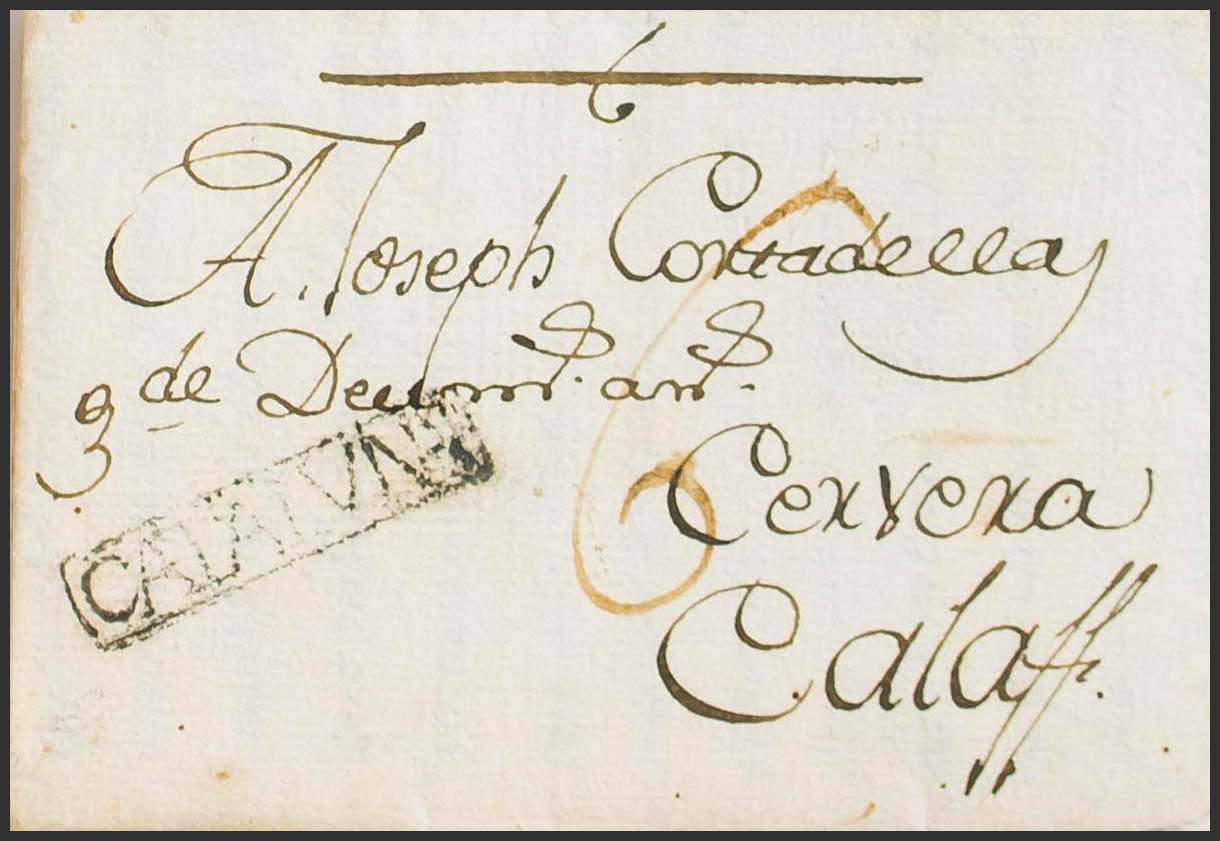 A. Joseph Cortadellas
gde Decımſ. anſ.
CATALVÑA
Cervera
Calaff.
6